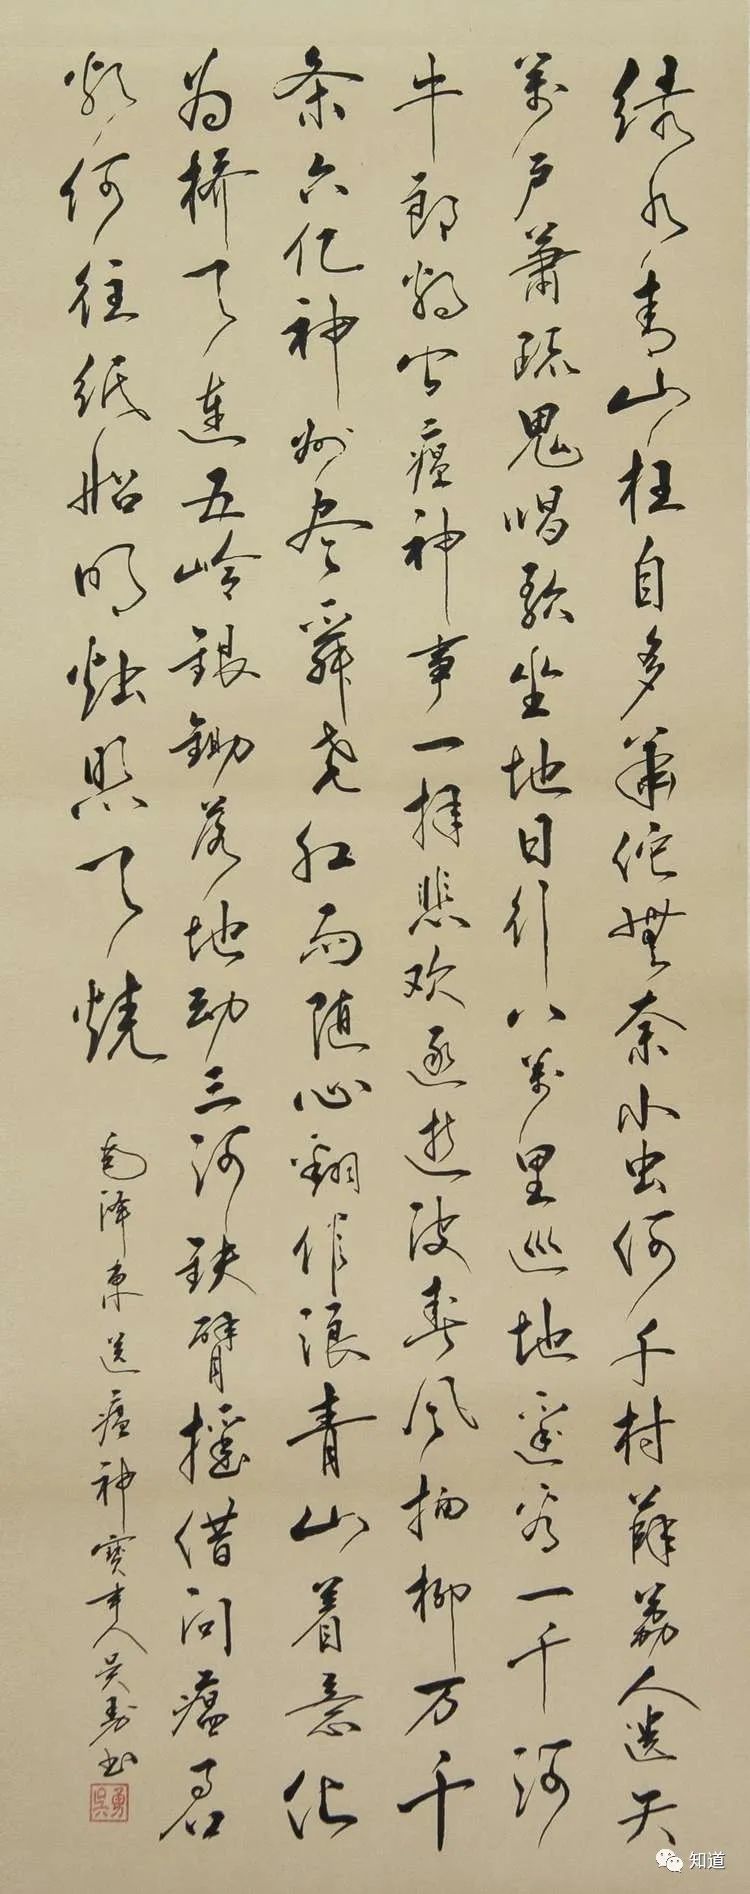 绿水青山枉自多華佗無奈小虫何千村薜荔人遗矢
萬户蕭疏鬼唱歌坐地日行八萬里巡地遥看一千河
牛郎欲问瘟神事一样悲欢逐逝波春风杨柳万千
条六亿神州尽舜尧红雨随心翻作浪青山着意化
为桥天连五岭银锄落地动三河铁臂摇借问瘟君
欲何往纸船明烛照天烧
毛泽东送瘟神寶丰人吴勇书
吳勇
知道